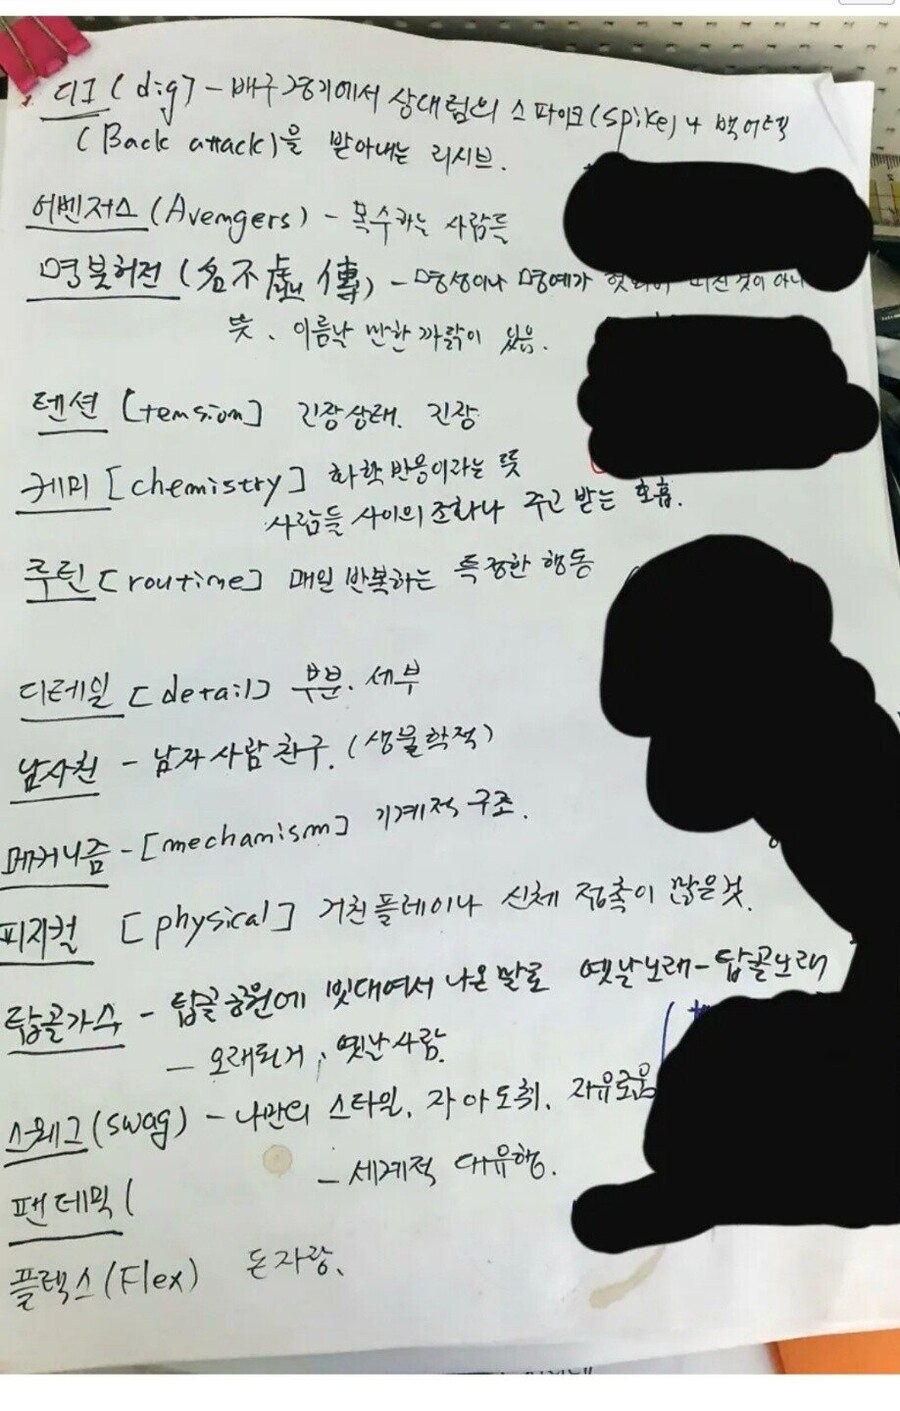 디그(dig) - 배구경기에서 상대팀의 스파이크(spike)나 백어택
(Back attack)을 받아내는 리시브.
어벤저스(Avengers) - 복수하는 사람들
명불허전(名不虛傳) - 명성이나 명예가 퍼진 것이 아니
뜻. 이름날 만한 까닭이 있음.
텐션[tension] 긴장상태. 긴장
케미[chemistry] 화학반응이라는 뜻
사람들 사이의 조화나 주고 받는 호흡.
루틴[routine] 매일 반복하는 특정한 행동
디테일[detail] 부분. 세부
남사친 - 남자 사람 친구. (생물학적)
메커니즘 - [mechamism] 기계적 구조.
피지컬 [physical] 거친플레이나 신체 접촉이 많은것.
탑골가수 - 탑골공원에 빗대여서 나온 말로 옛날노래-탑골노래
- 오래되거, 옛난사람.
스웨그(swag) - 나만의 스타일, 자아도취, 자유로움
팬데믹( - 세계적 대유행.
플렉스(Flex) 돈자랑.